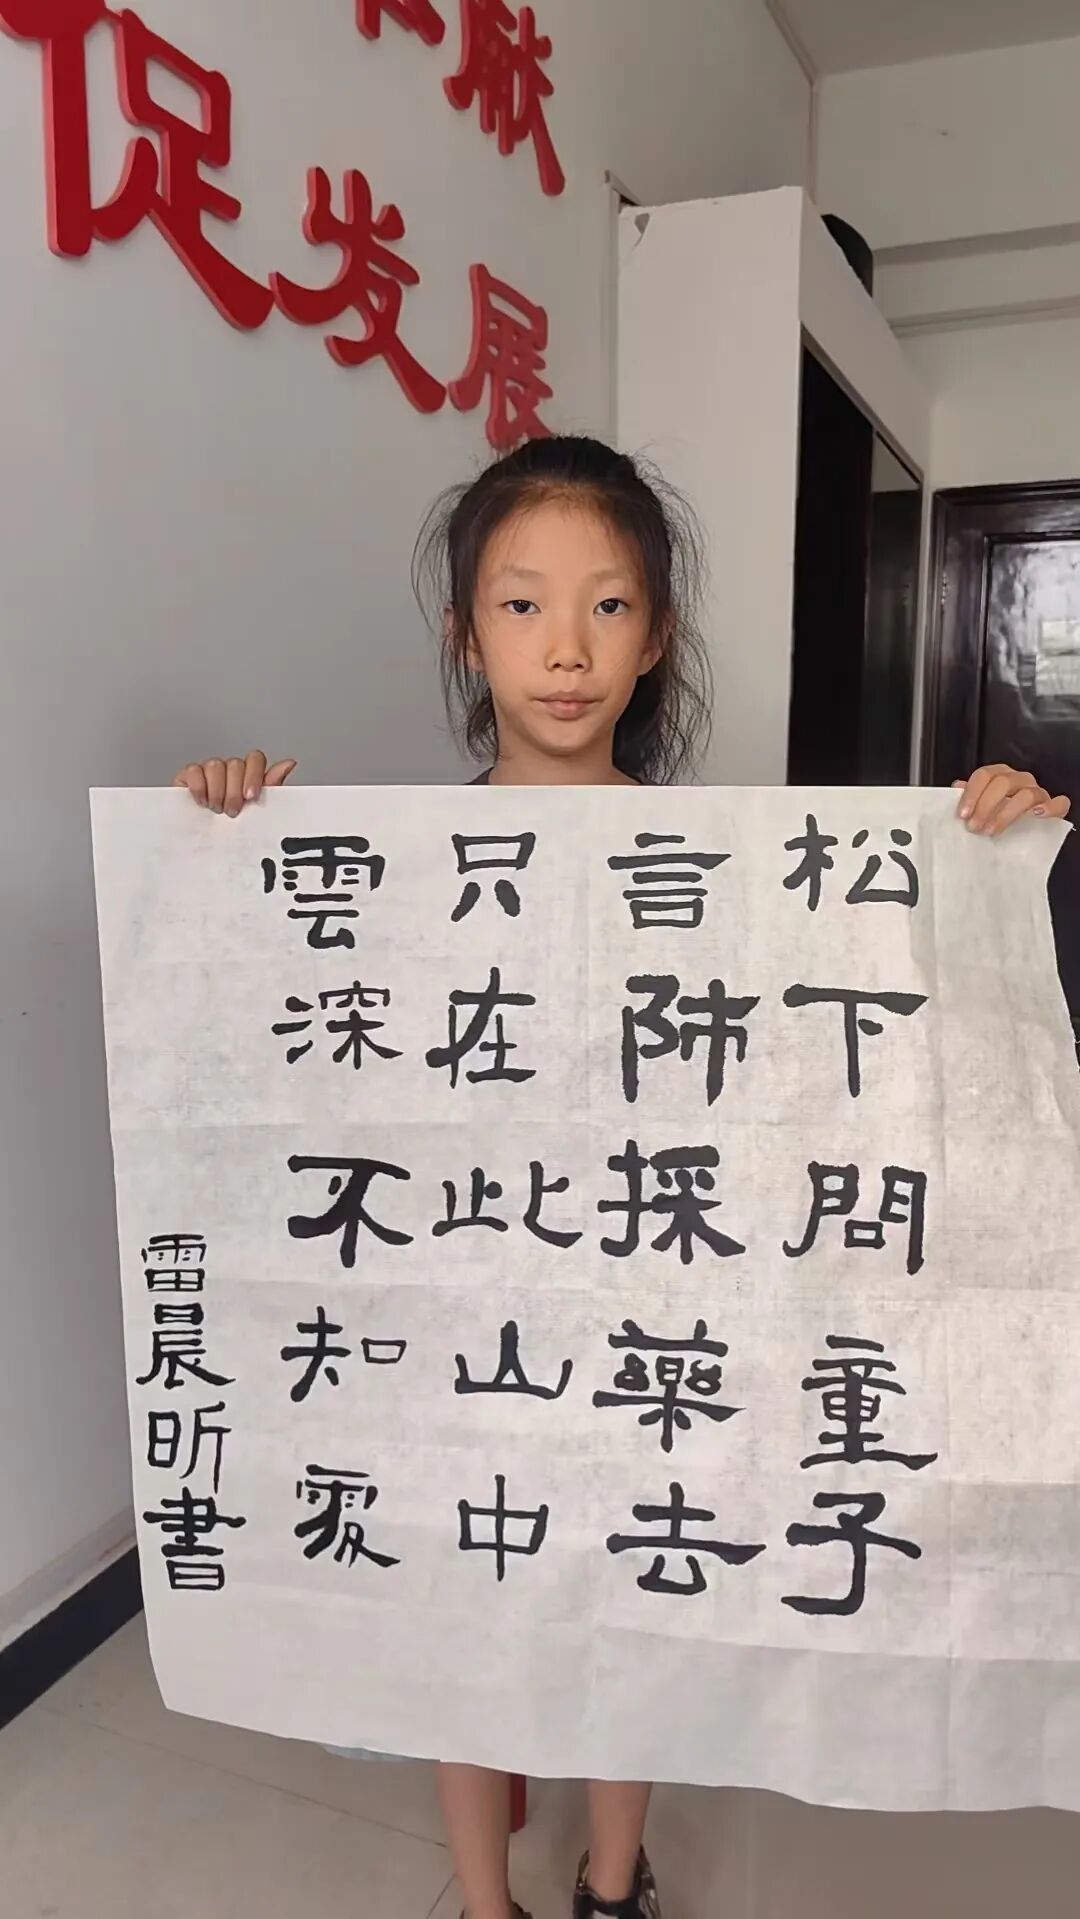 促发展
松下問童子
言師採藥去
只在此山中
雲深不知處
雷晨昕書